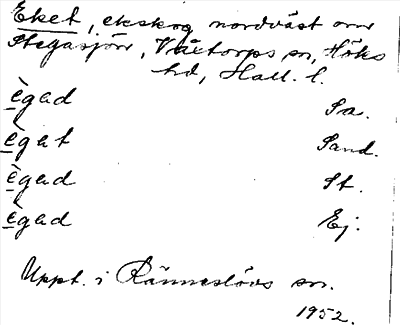 Eket, ekskog nordväst om
Stegasjön, Våxtorps sn, Höks
hd, Hall. l.
ègad Sa.
ègat Sand.
ègad St.
ègad Ej.
Uppt. i Ränneslövs sn.
1952.